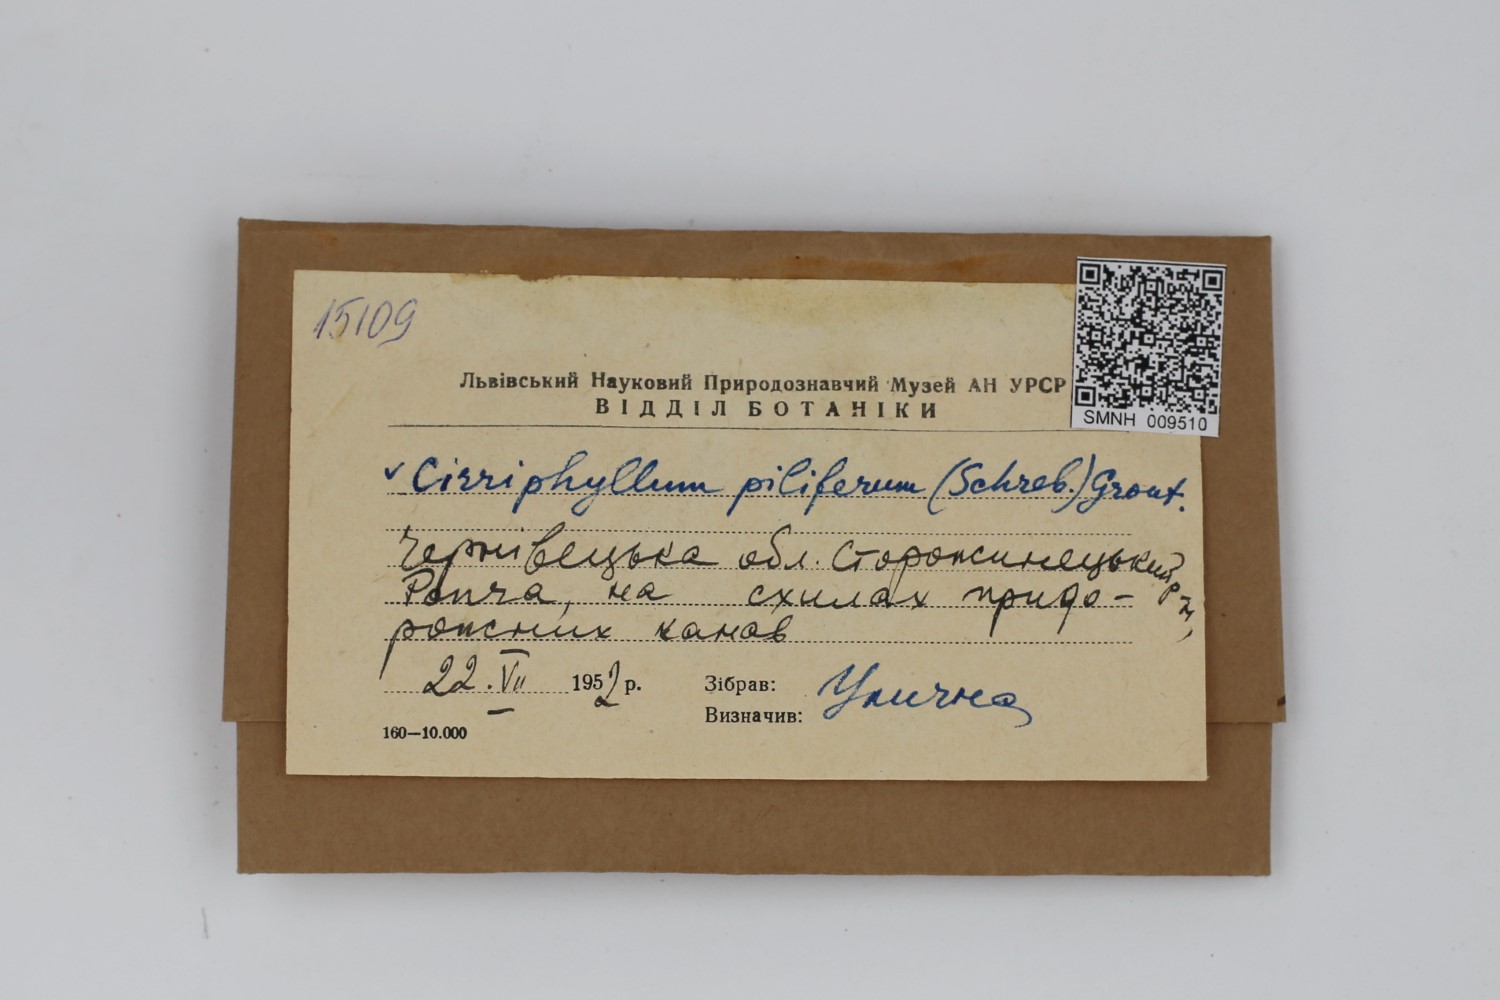 15109
Львівський Науковий Природознавчий Музей АН УРСР
ВІДДІЛ БОТАНІКИ
SMNH 009510
✓ Cirriphyllum piliferum (Schreb.) Grout.
Чернівецька обл. Сторожинецький р-н,
Ропча, на схилах придо-
рожних канав
22.VII 1952 р.
Зібрав: Улична
Визначив:
160—10.000